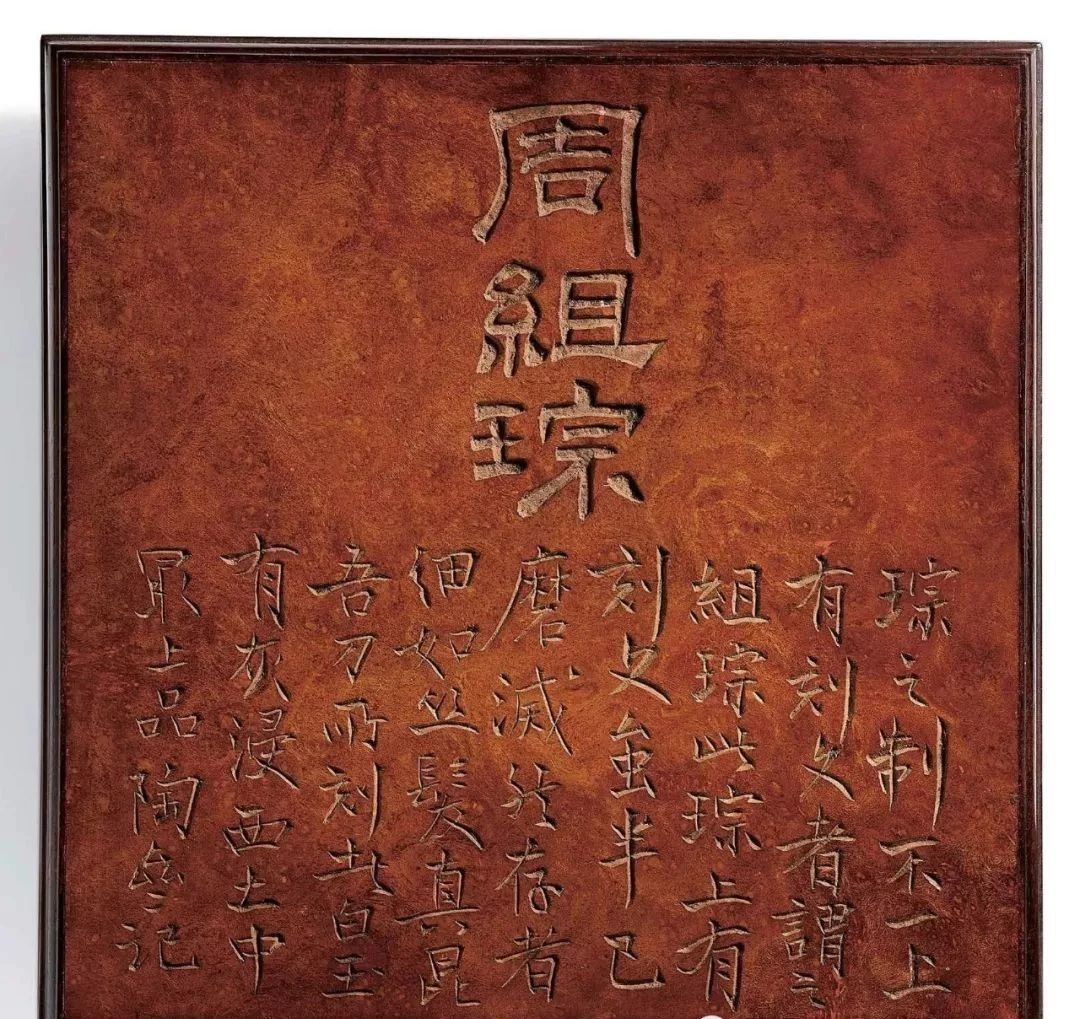 周組琮
琮之制不一上
有刻文者謂之
組琮此琮上有
刻文虽半已
磨滅然存者
细如丝髮真昆
吾刀所刻此白玉
有灰浸西土中
最上品陶盦记